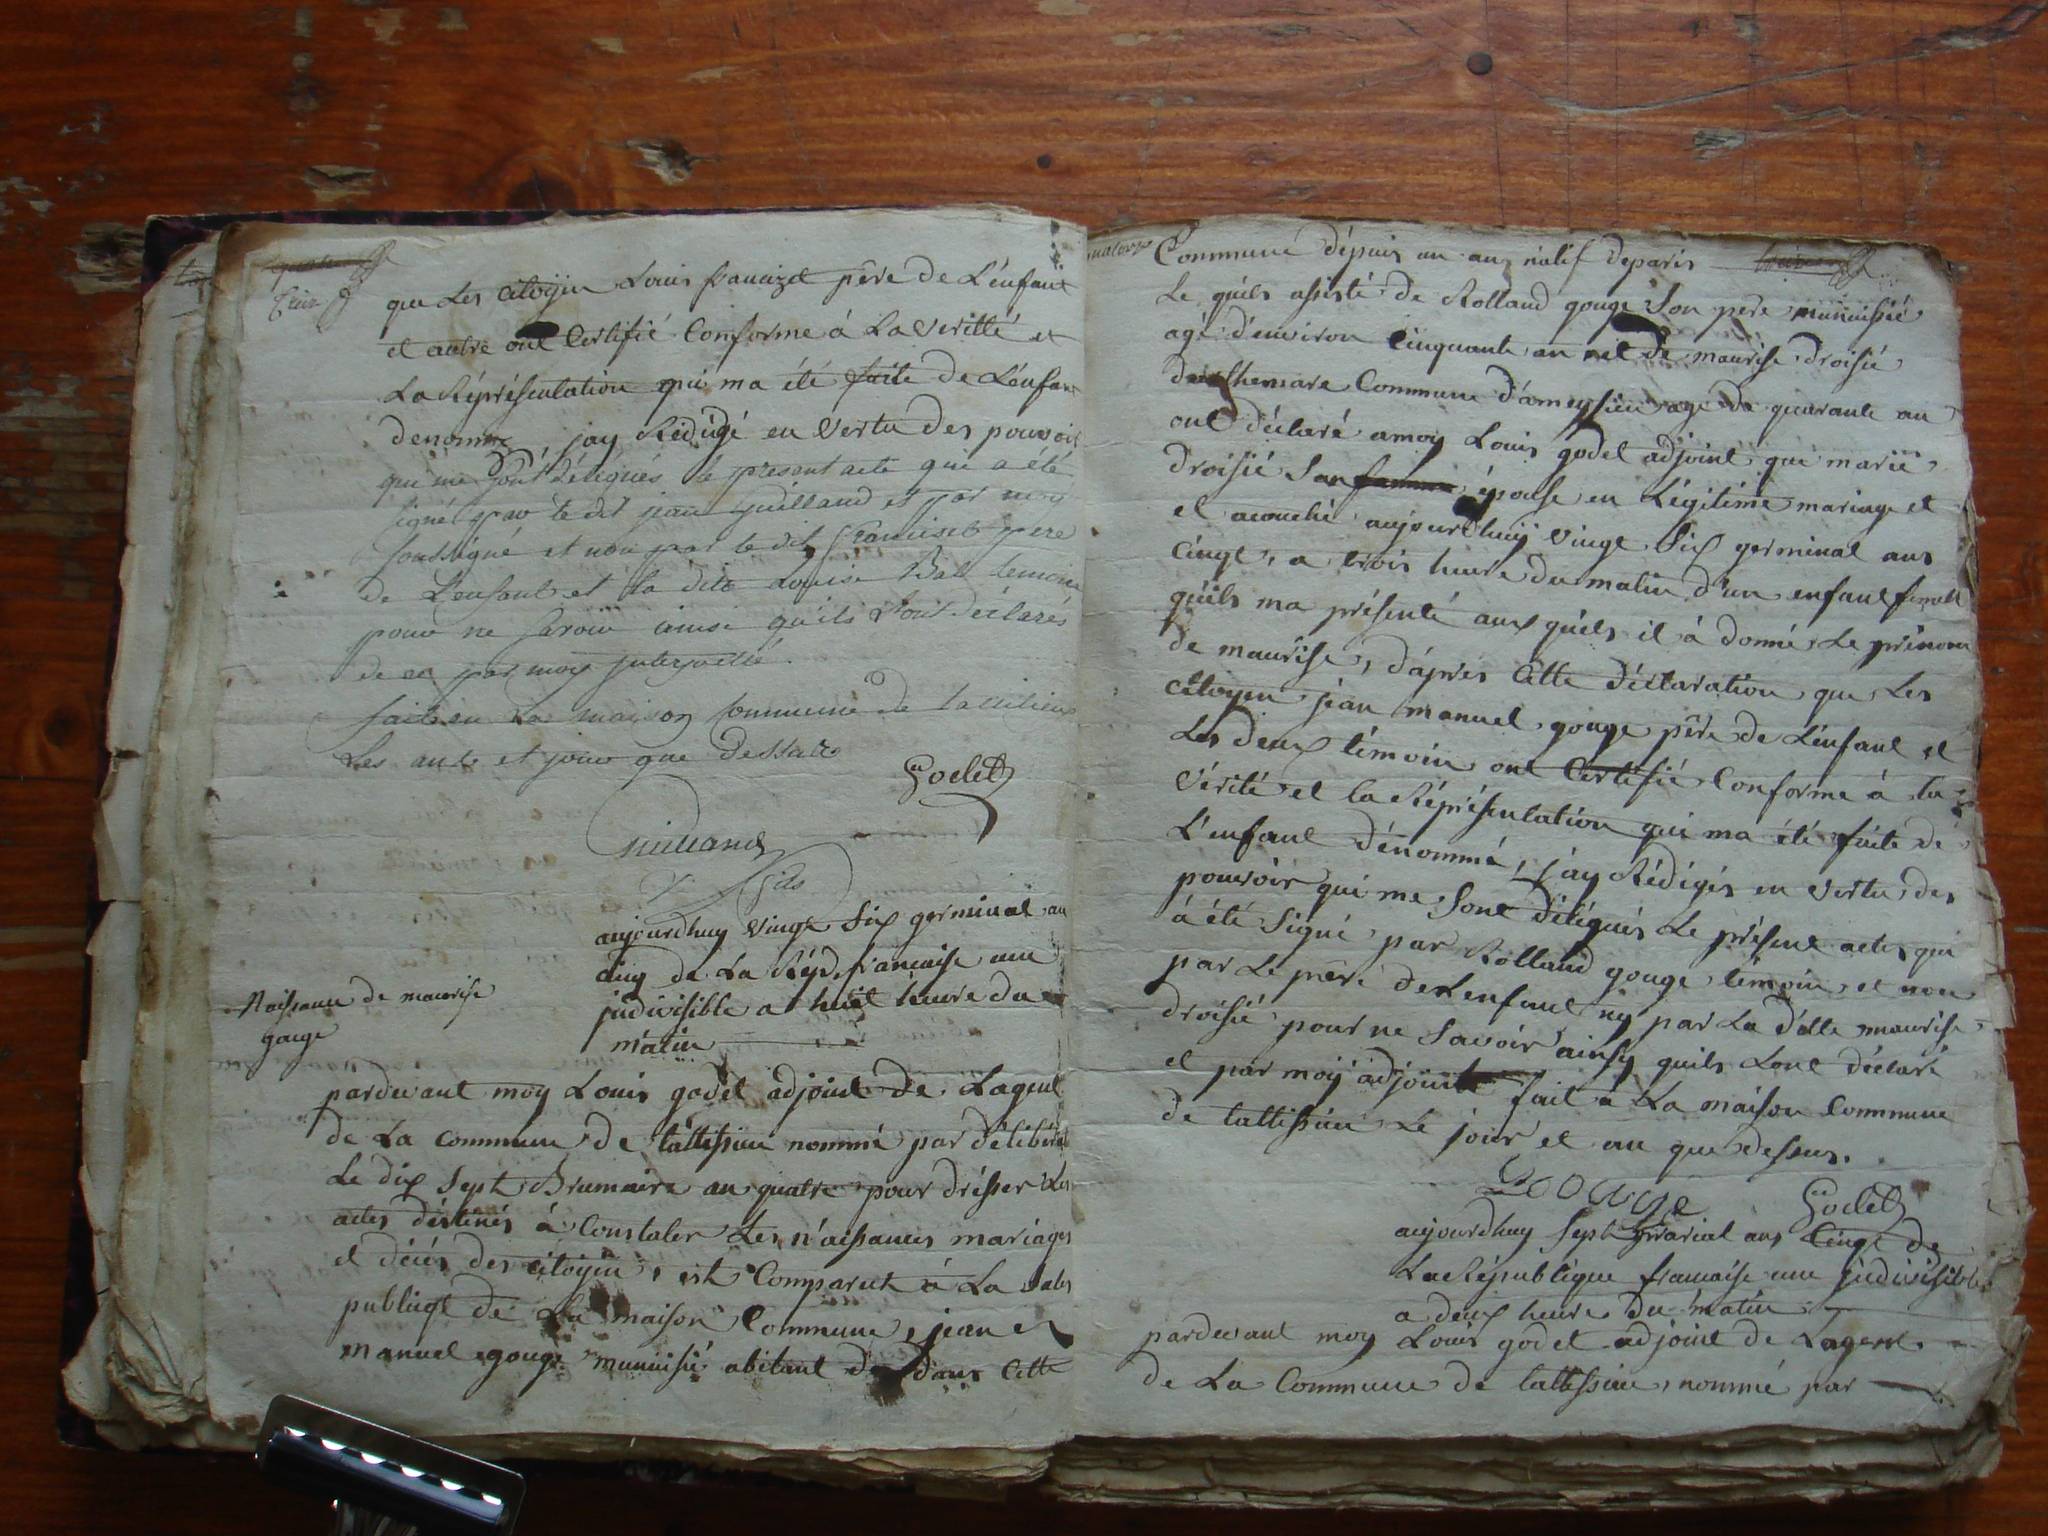 que Les Citoyin Louis francizet père de L'énfant
et autre ont Certifié Conforme á La veritté et
La Répréséntation qui ma été faite de Lénfant
denommé, jay Rédigé en vertu des pouvoir
qui me sont délégués le présent acte qui a été
signé par le dit jean guilland et par moy
soussigné et non par le dit francizet pere
de Lenfant et la dite Louise Bal temoin
pour ne savoir ainsi quils Lont déclarés
de ce par moy interpellé.
faite en La maison Commune de
Les ans et jour que dessus
Godet
Guilland
fils
Naissance de maurise
gouge
aujourdhuy vingt six germinal an
cinq de La Rép. francaise une
indivisible a huit heure du
matin
pardevant moy Louis godet adjoint de Lagent
de La commune de tattissieu nommé par délibérat
Le dix sept Brumaire an quatre pour drésser Les
actes déstinés á Constater Les náissances mariages
et décés des citoyin, est Comparut á La sales
publiqe de La maison Commune, jean et
manuel gouge munisié abitant dans Cette
quatorze
Commune dépuis un ans natif de paris
Le quéls assisté de Rolland gouge Son pere munisié
agé d'environ Cinquante an et de maurise droisié
Commune d'ameysieu agé de quarante an
ont déclaré a moy Louis godet adjoint que marie
droisié San épouse en Légitime mariage et
et acouché aujourdhuy vingt six germinal ans
Cinqt, a trois heure du matin d'un enfant femell
quéils ma présenté aux quéls il á donné Le prénom
de maurise, dáprés Cétte déclaration que Les
Citoyin jean manuel gouge pére de Lénfant et
Les deux témoin ont Certifié Conforme á la
vérité et la Répréséntation qui ma été faite de
L'enfant dénommé, jáy Rédigés en vertu des
pouvoir qui me Sont délégués Le présent actes qui
á été Signé par Rolland gouge témoin et non
par Le pére de Lenfant ny par La ditte maurise
droisié pour ne savoir ainsy quils Lont déclaré
et par moy adjoint fait á La maison Commune
de tattissieu Le jour et an que dessus.
Gouge Godet
aujourdhuy Sept prairial ans Cinqt de
La République francaise une indivisible
a deux heure du matin
pardevant moy Louis godet adjoint de Lagent
de La Commune de tattissieu, nommé par